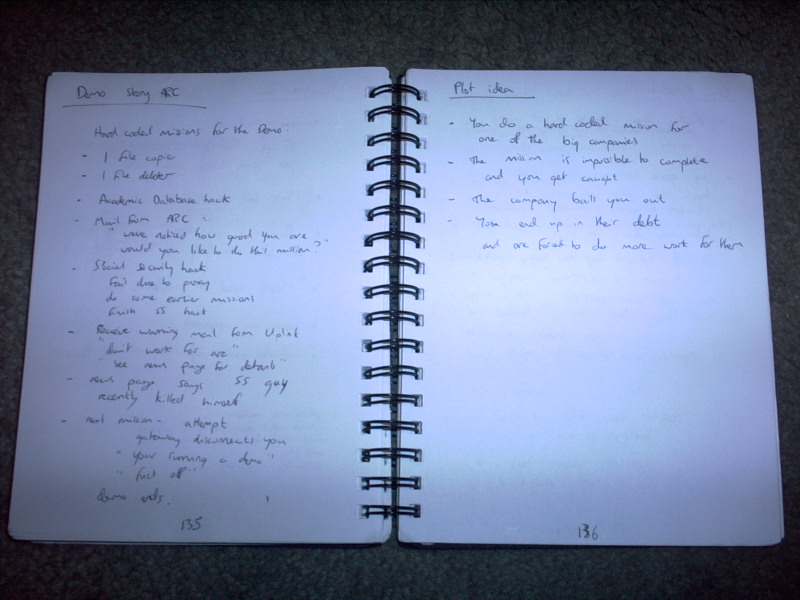 Demo Story ARC
Hard coded missions for the Demo
- 1 file copier
- 1 file deleter
- Academic Database hack
- Mail from ARC
"weve noticed how good you are
would you like to do this mission?"
- Social security hack
Fail due to proxy
do some earlier missions
finish SS hack
- Receive warning mail from Uplink
"don't work for arc"
"see news page for details"
- news page says SS guy
recently killed himself
- next mission - attempt
gateway disconnects you
"your running a demo"
"fuck off"
Demo ends.
135
Plot idea
- You do a hard coded mission for
one of the big companies
- The mission is impossible to complete
and you get caught
- The company bails you out
- You end up in their debt
and are forced to do more work for them
136